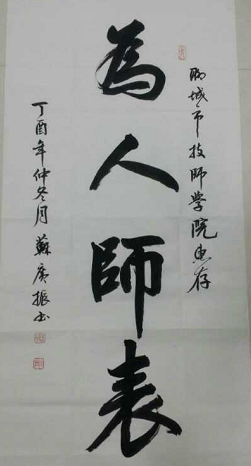 聊城市技師学院惠存
為人師表
丁酉年仲冬月蘇广振书